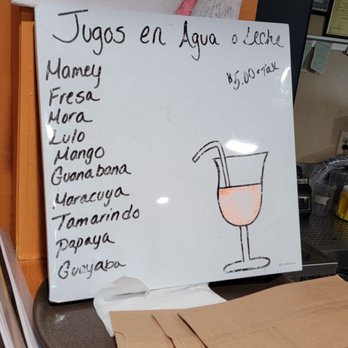 Jugos en Agua o Leche
$5.00+Tax
Mamey
Fresa
Mora
Lulo
Mango
Guanabana
Maracuya
Tamarindo
papaya
Guayaba